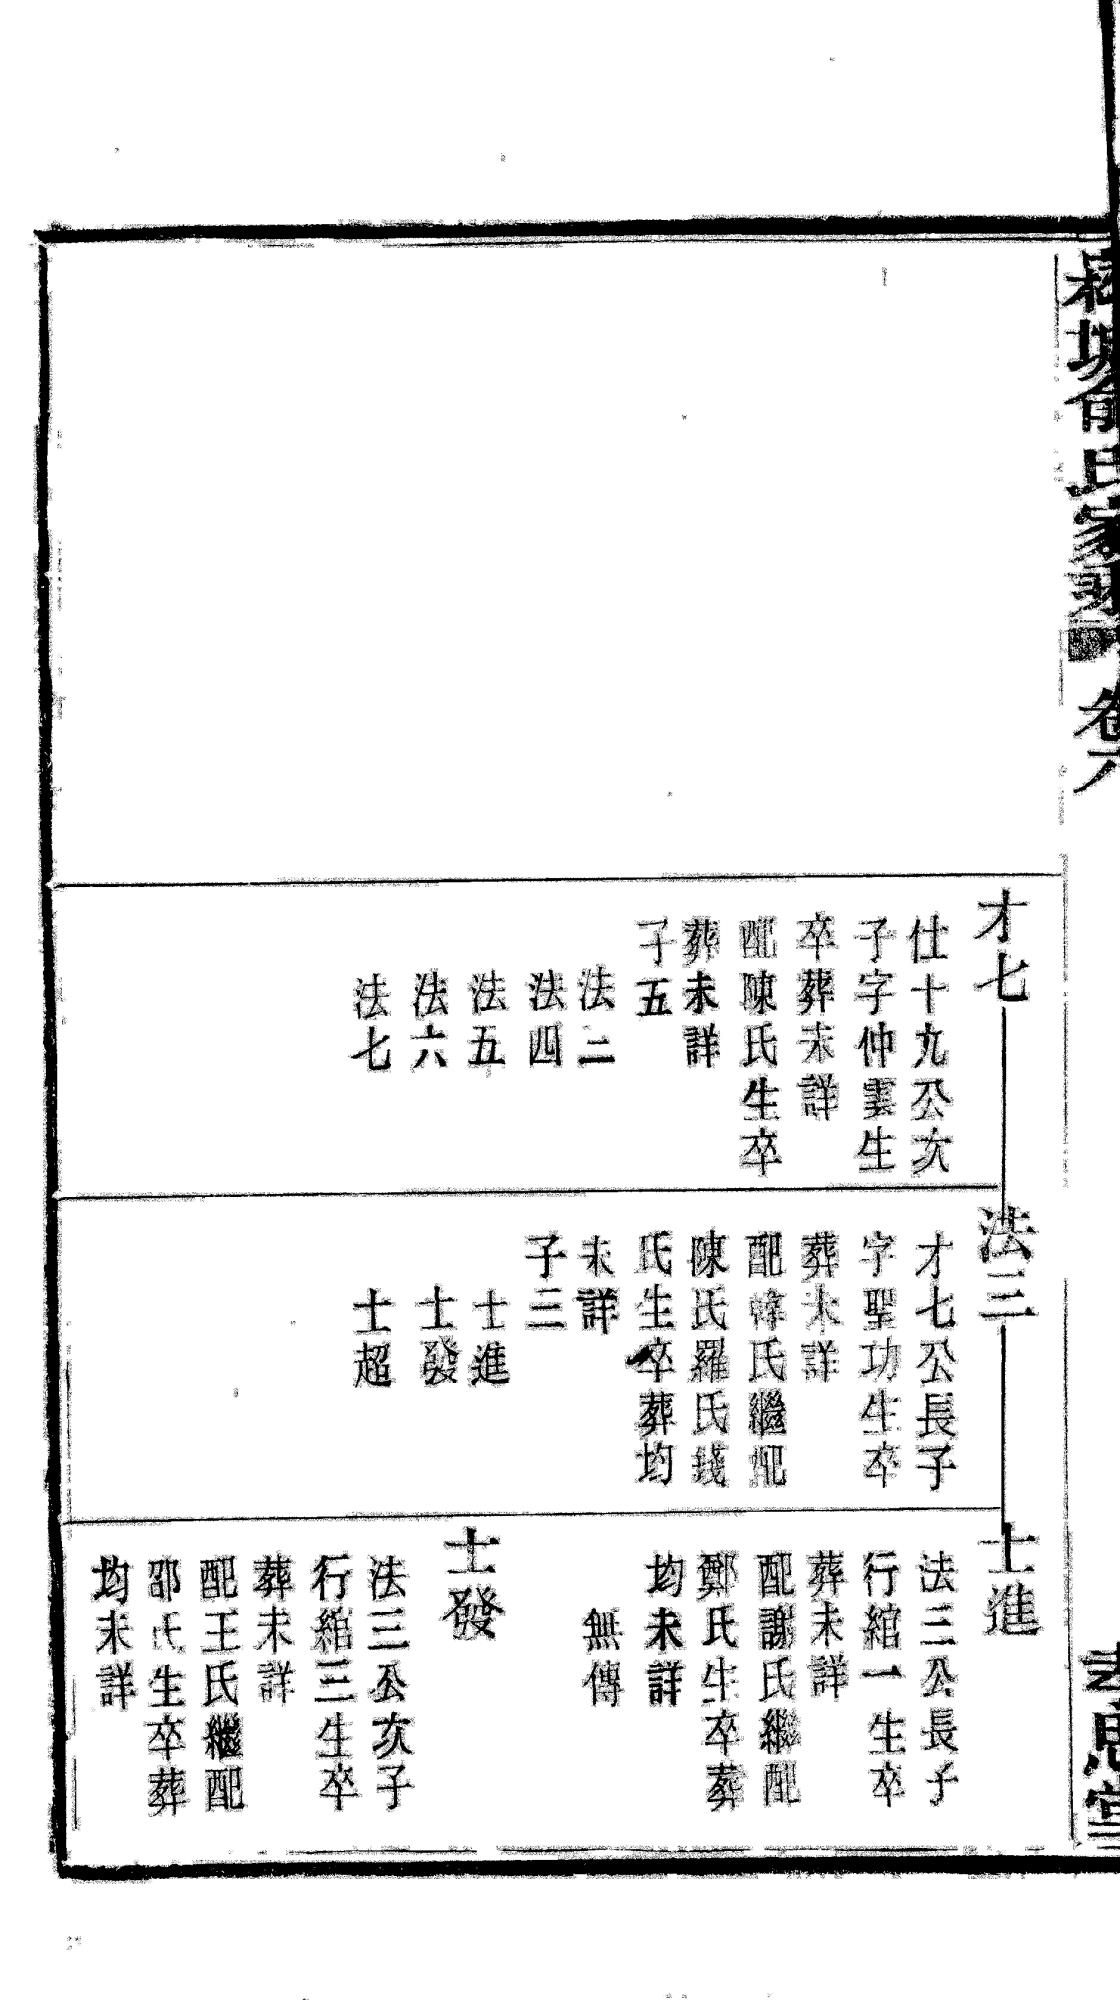 氏家乘
卷六
才七
仕十九公次
子字仲雲生
卒葬未詳
配陳氏生卒
葬未詳
子五
法三
法四
法五
法六
法七
法三
才七公長子
字聖功生卒
葬未詳
配韓氏繼配
陳氏羅氏錢
氏生卒葬均
未詳
子三
士進
士發
士超
士進
法三公長子
行綰一生卒
葬未詳
配謝氏繼配
鄭氏生卒葬
均未詳
無傳
士發
法三公次子
行綰三生卒
葬未詳
配王氏繼配
邵氏生卒葬
均未詳
思堂